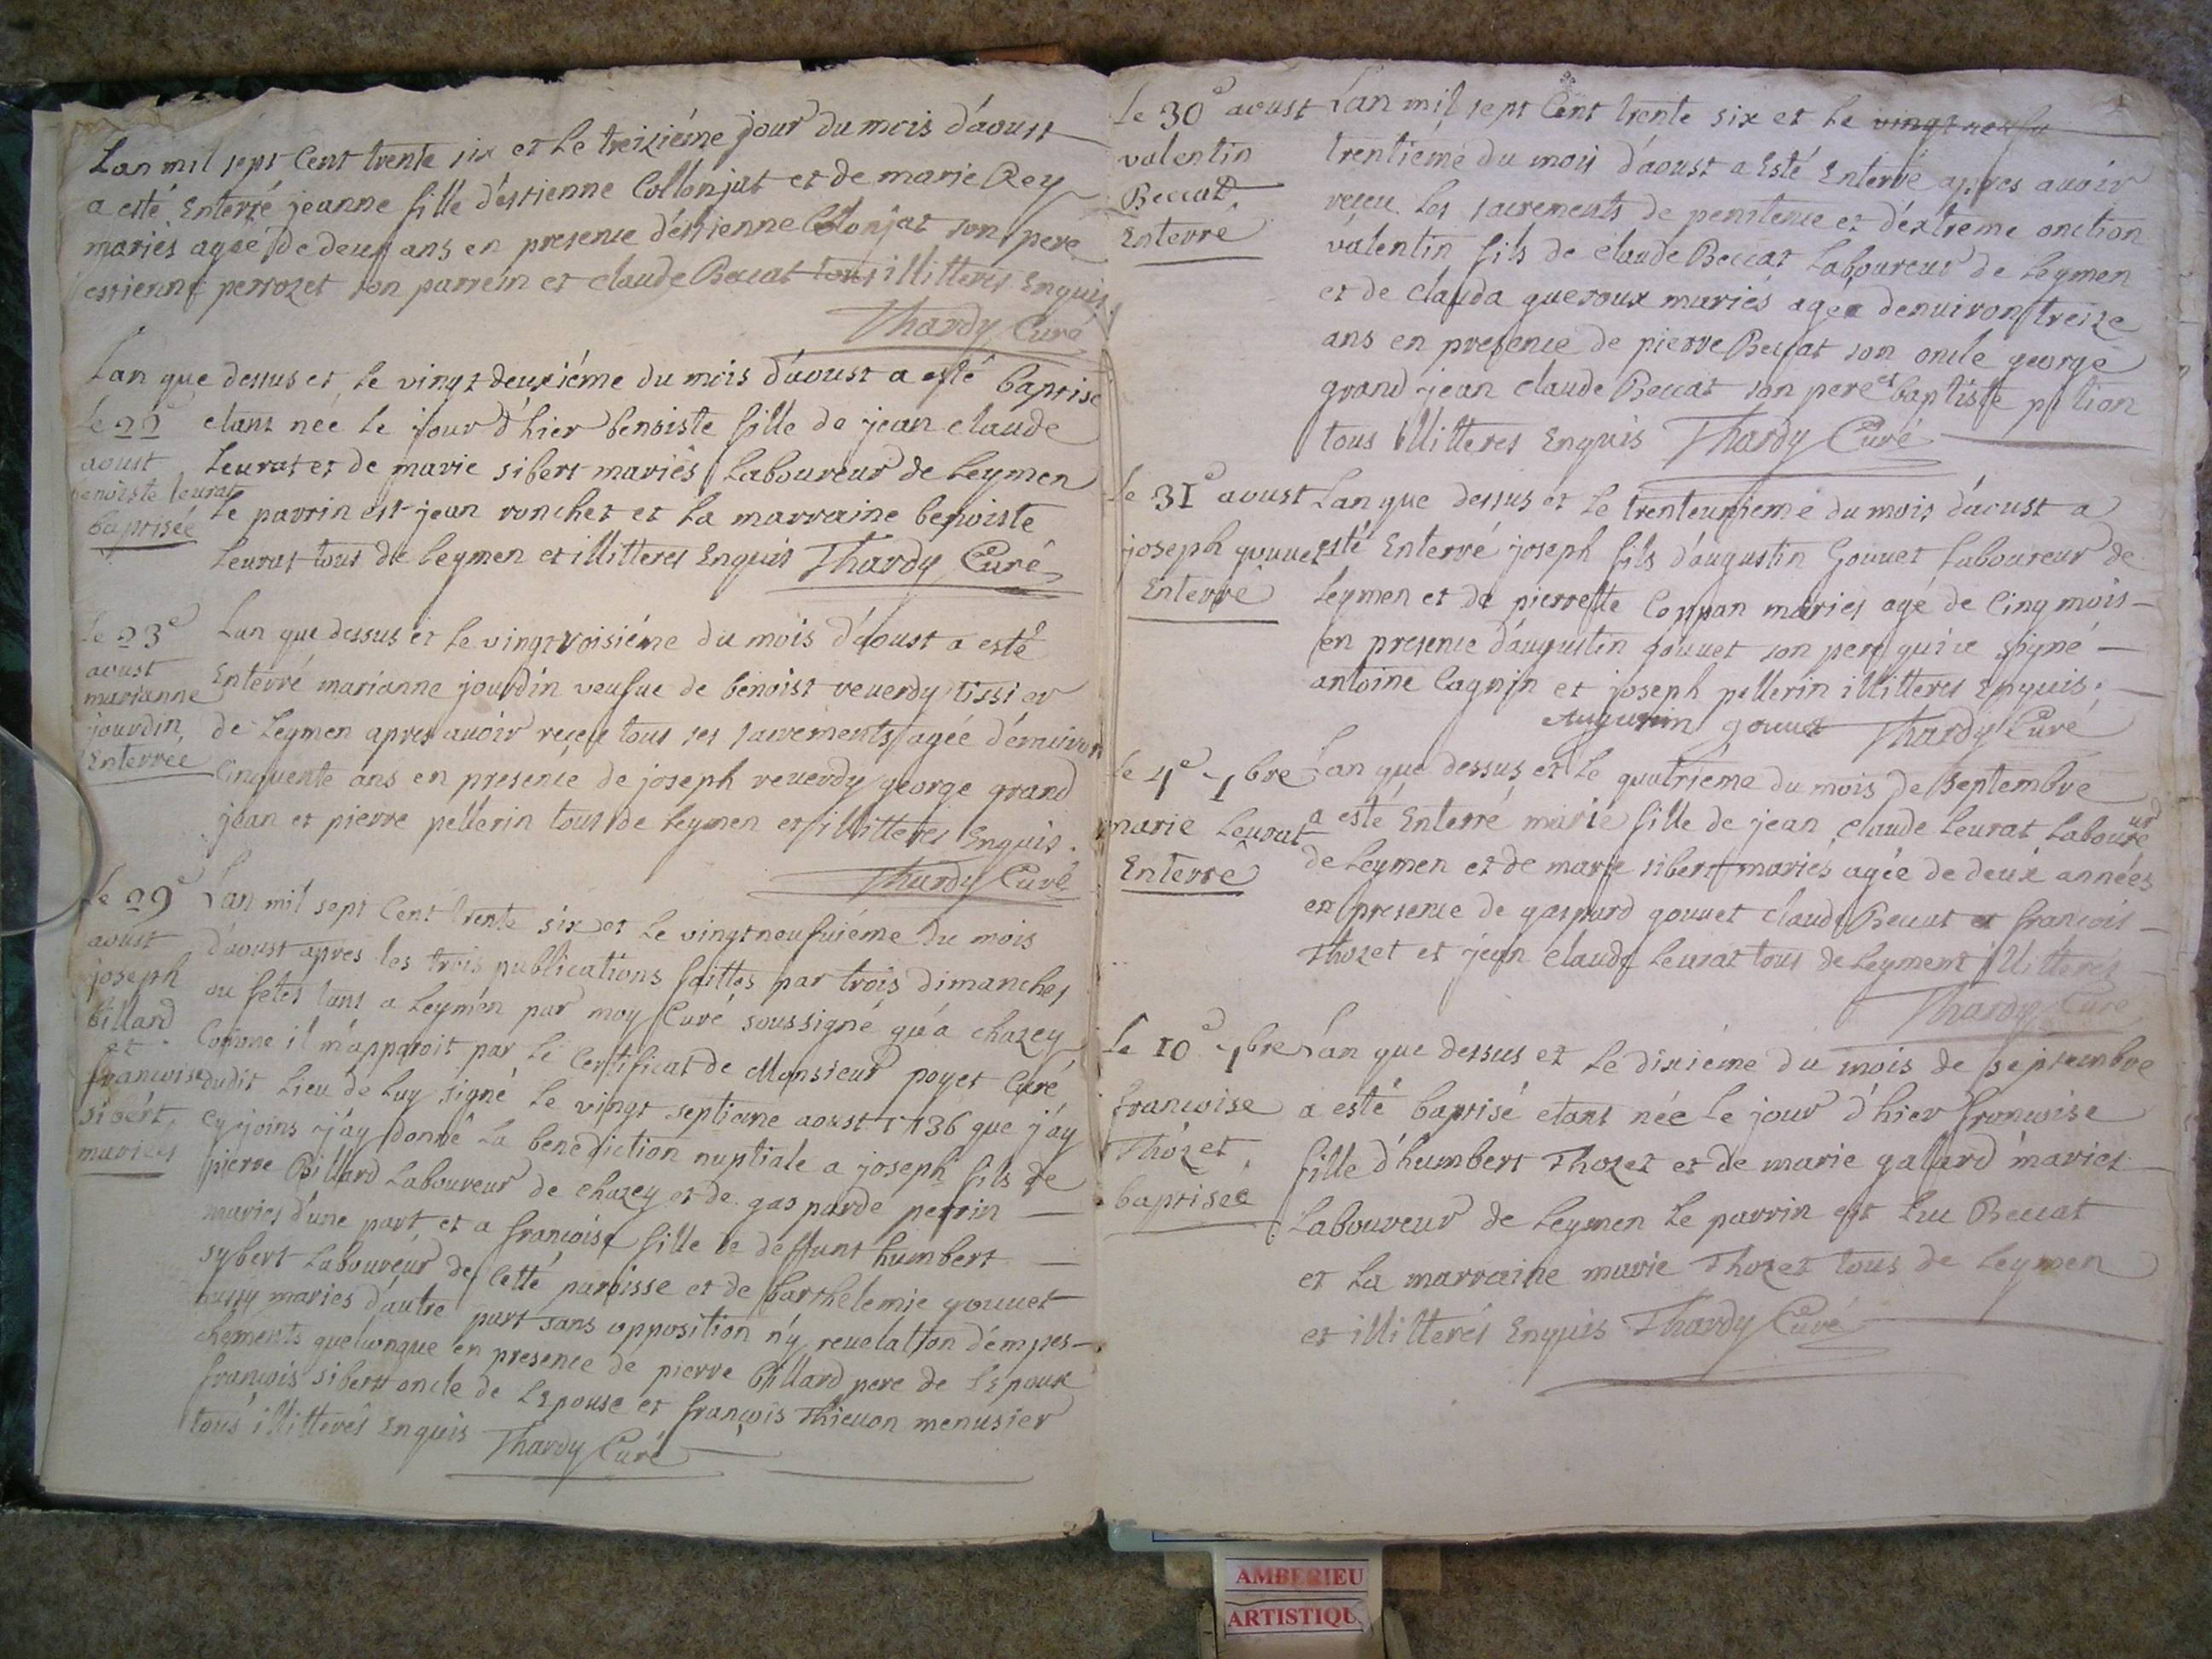 Lan mil sept Cent trente six et Le treiziéme jour du mois d'aoust
a esté Enterré jeanne fille d'estienne Collonjat et de marie Rey
mariés agée de deux ans en presence d'estienne Colonjat son pere
estienne perrozet son parrein et claude Beccat tous illitterés Enquis
Thardy Curé
Lan que dessus et Le vingt deuxiéme du mois d'aoust a esté baptisé
Le 22
aoust
benoiste leurat
baptisée
etant née Le jour d'hier benoiste fille de jean claude
Leurat et de marie sibert mariés Laboureur de Leymen
Le parrin est jean ronchet et La marraine benoiste
Leurat tous de Leymen et illitterés Enquis Thardy Curé
Le 23e
aoust
marianne
jourdin
Enterrée
Lan que dessus et Le vingt roisiéme du mois d'aoust a esté
Enterré marianne jourdin veufue de benoist reuerdy tissier
de Leymen apres auoir reçeu tous ses sacrements agée d'enuiron
Cinquente ans en presence de joseph reuerdy george grand
jean et pierre pellerin tous de Leymen et illitterés Enquis.
Thardy Curé
Le 29e
aoust
joseph
billard
et
francoise
sibert
mariés
Lan mil sept Cent trente six et Le vingt neufuiéme du mois
d'aoust apres les trois publications faittes par trois dimanches
ou fetes tant a Leymen par moy Curé soussigné qu'a chazey
Comme il m'apparoit par Le Certificat de Monsieur poyet Curé
dudit Lieu de Luy signé Le vingt septieme aoust 1736 que j'ay
cy joins j'ay donné La benediction nuptiale a joseph fils de
pierre Billard Laboureur de chazey et de gasparde perrin
mariés d'une part et a françoise fille de deffunt humbert
sybert Laboureur de Cette paroisse et de barthelemie gouuet
aussy mariés d'autre part sans opposition n'y reuelation d'empes-
chements quelconque en presence de pierre Billard pere de L'Epoux
françois sibert oncle de L'Epouse et françois Thieuon menusier
tous illitterés Enquis Thardy Curé
Le 30e aoust
valentin
Beccat
Enterré
Lan mil sept Cent trente six et Le vingt neufu
trentieme du mois d'aoust a Esté Enterré apres auoir
reçeu Les sacrements de penitence et d'extreme onction
valentin fils de claude Beccat Laboureur de Leymen
et de clauda queroux mariés agée denuiron treize
ans en presence de pierre Beccat son oncle george
grand jean claude Beccat son pere et baptiste pition
tous illitterés Enquis Thardy Curé
Le 31e aoust
joseph gouuet
Enterré
Lan que dessus et Le trenteunieme du mois d'aoust a
esté Enterré joseph fils d'augustin Gouuet Laboureur de
Leymen et de pierrette Coppan mariés agé de Cinq mois
en presence d'augustin gouuet son pere qui a signé
antoine Cagnin et joseph pellerin illitterés Enquis.
Augustin gouuet Thardy Curé
Le 4e 7bre
marie Leurat
Enterré
Lan que dessus et Le quatrieme du mois de Septembre
a esté Enterré marie fille de jean claude Leurat Laboureur
de Leymen et de marie sibert mariés agée de deux années
en presence de gaspard gouuet claude Beccat et françois
Thozet et jean claude Leurat tous de Leyment illitterés
Thardy Curé
Le 10e 7bre
francoise
Thozet
baptisée
Lan que dessus et Le dixieme du mois de septembre
a esté baptisé etant née Le jour d'hier francoise
fille d'humbert Thozet et de marie galard mariés
Laboureur de Leymen Le parrin est Luc Beccat
et La marraine marie Thozet tous de Leymen
et illitterés Enquis Thardy Curé
AMBERIEU
ARTISTIQU